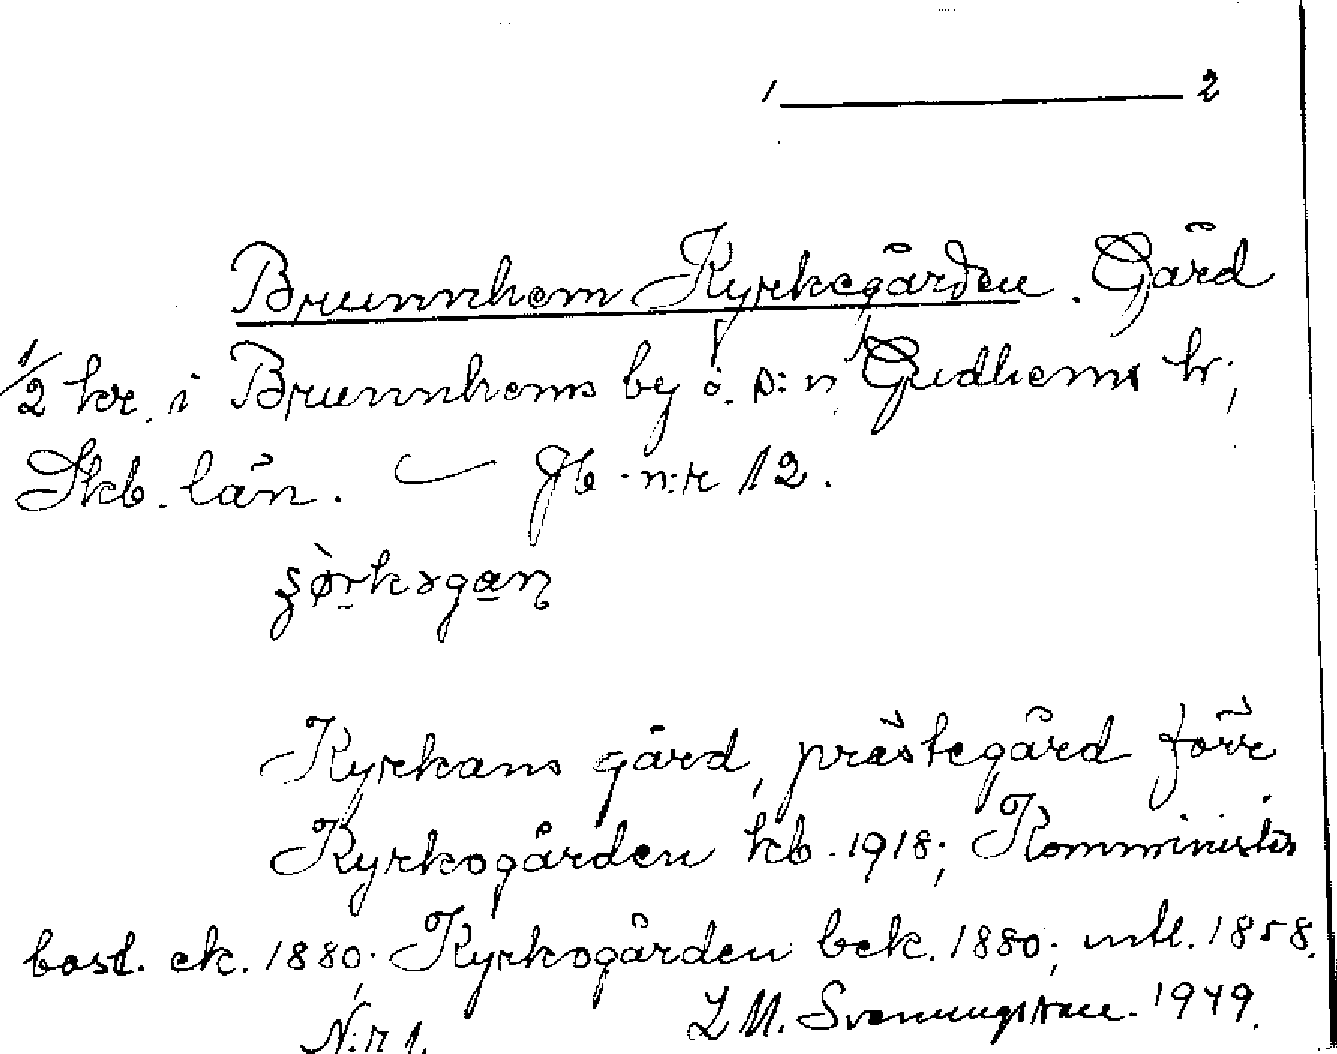 1 2
Brunnhem Kyrkegården. Gård
1/2 hr. i Brunnhems by o. s:n Gudhems hr;
Skb. län. Jb. n:r 12.
Kyrkans gård, prästegård förr
Kyrkogården kb. 1918; Komminister
bost. ek. 1880; Kyrkogården bek. 1880; mtl. 1858.
N:r 1. Z M. Svenungsson 1949.